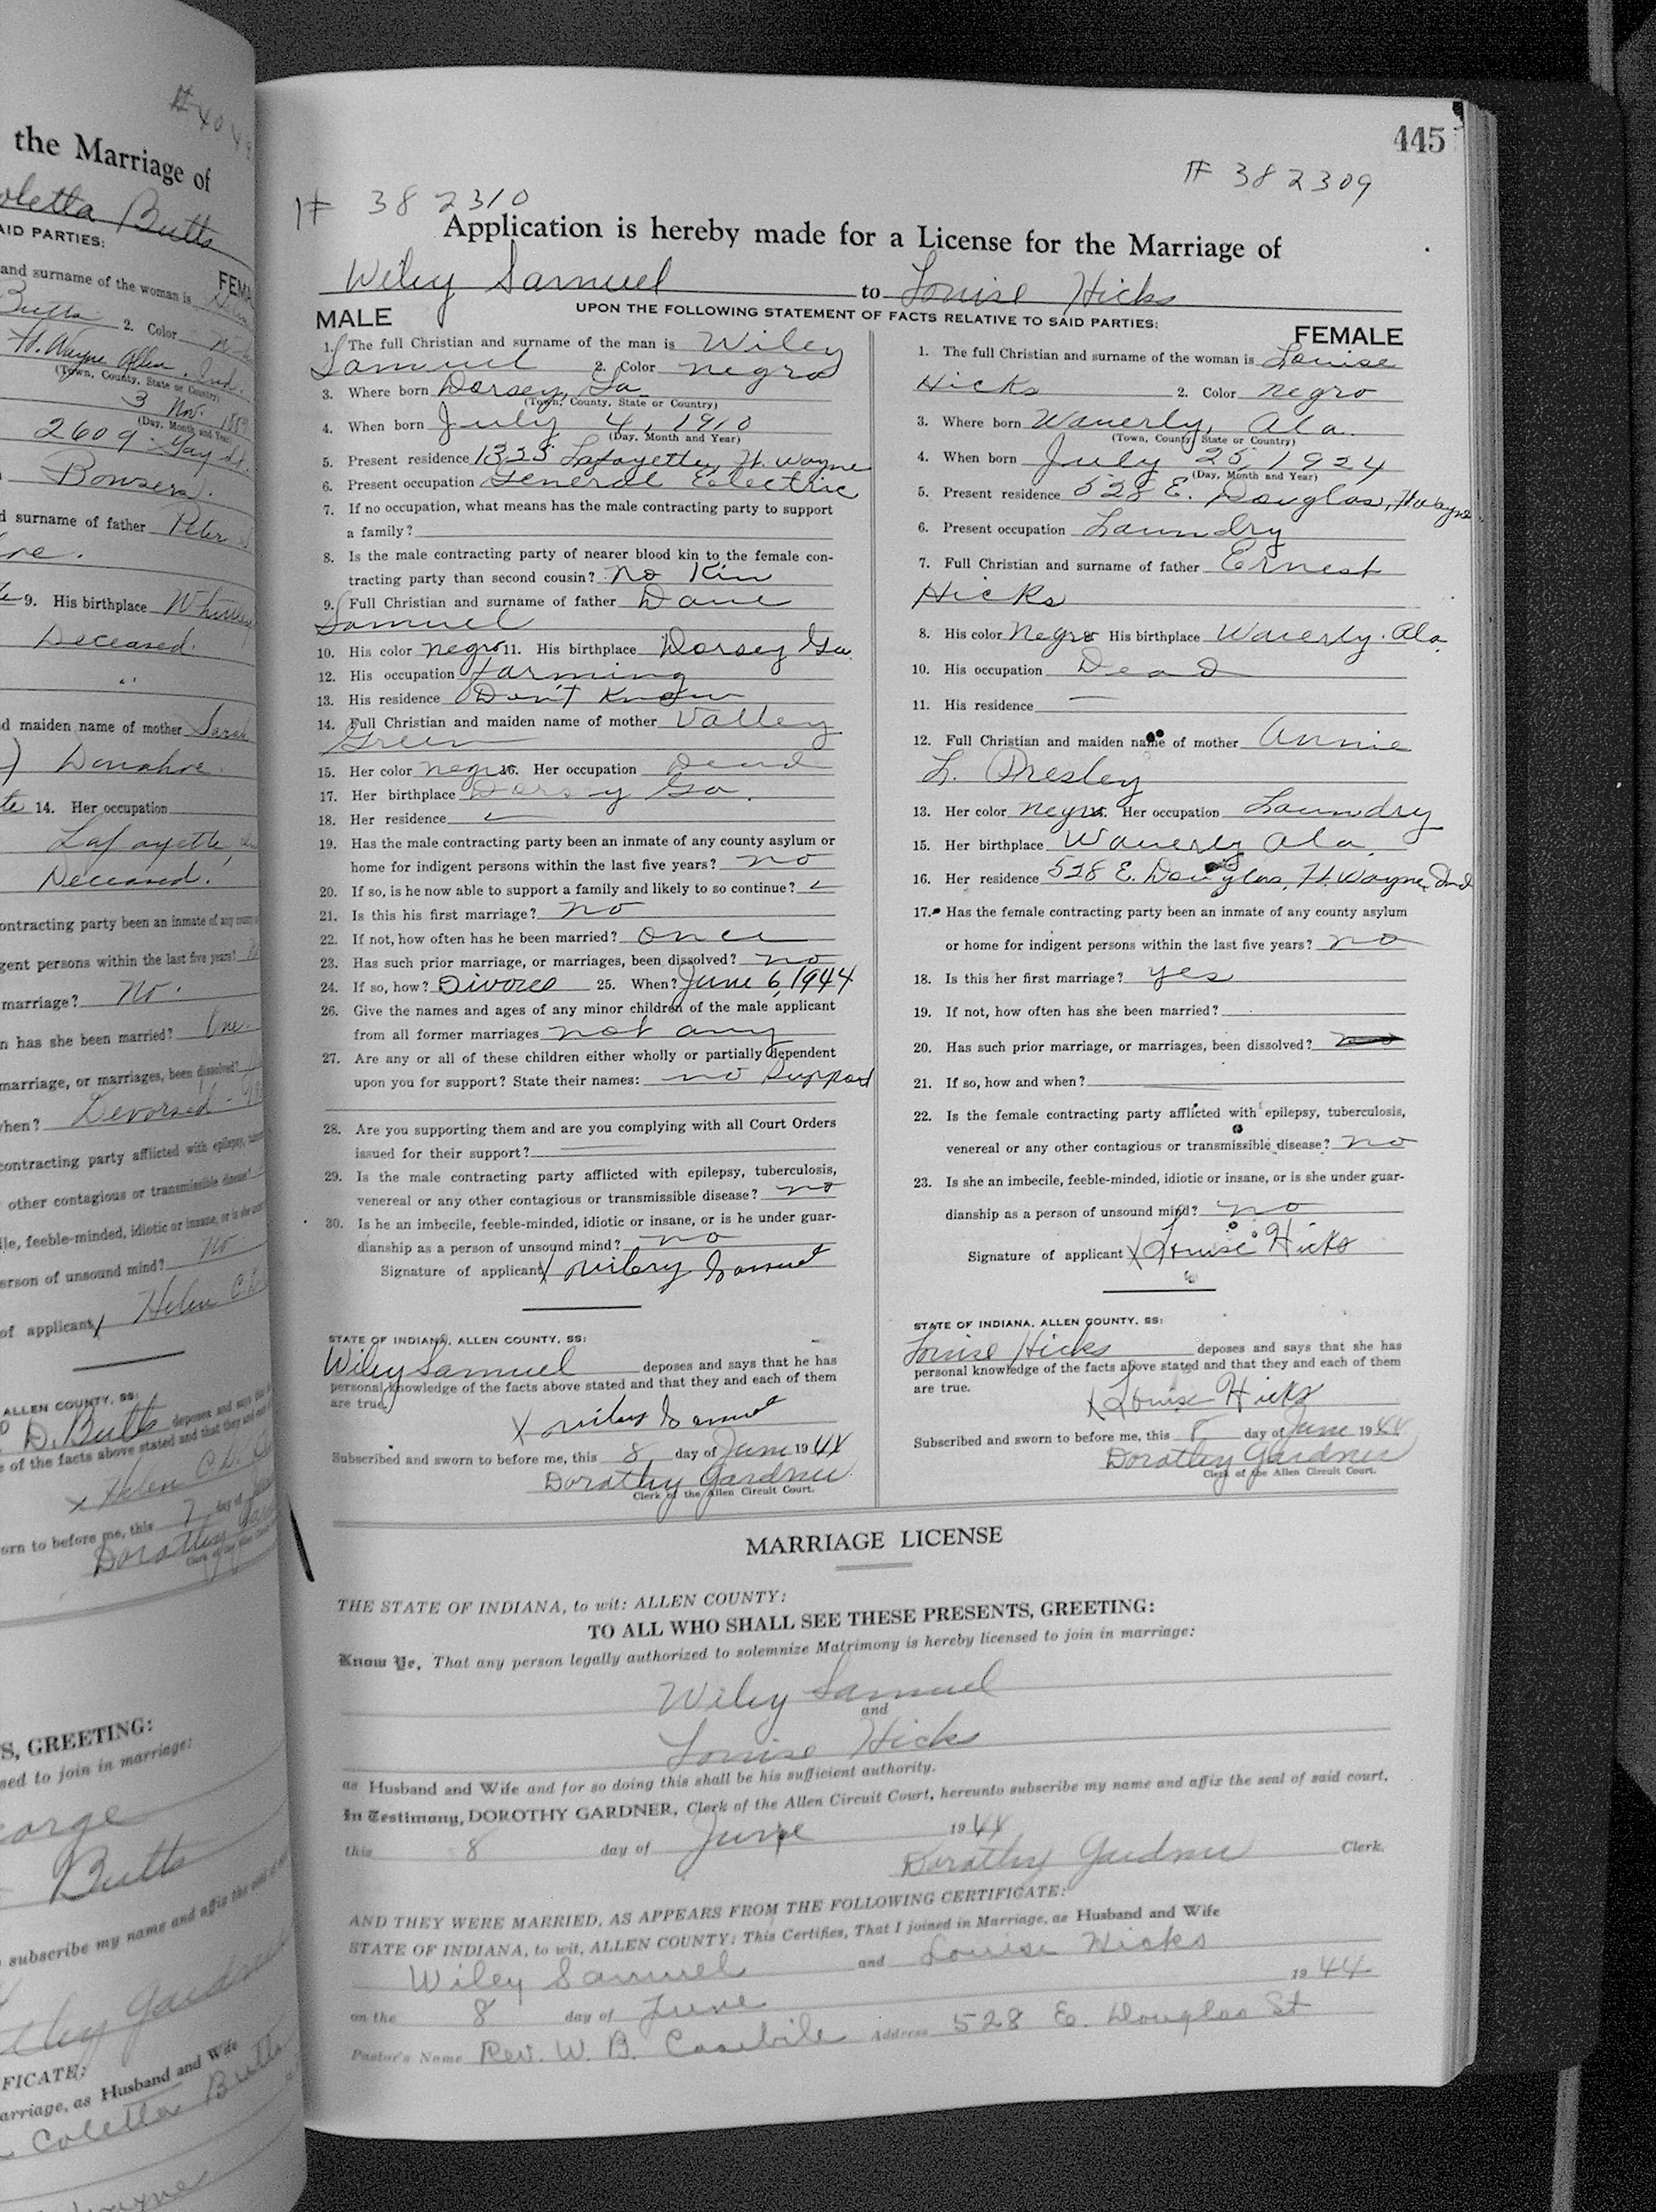 # 404
the Marriage of
Coletta Butts
AID PARTIES:
FEMA
and surname of the woman is
Butts 2. Color
Ft. Wayne Allen, Ind.
(Town, County, State or Country)
3 Nov. 188
(Day, Month and Year)
2609 Gay St.
Bowsers.
d surname of father Peter
9. His birthplace Whitley
Deceased.
"
d maiden name of mother Sarah
) Donahoe.
te 14. Her occupation
Lafayette,
Deceased.
ontracting party been an inmate of any county
gent persons within the last five years?
marriage? No.
n has she been married? One.
marriage, or marriages, been dissolved?
when? Devorsed
contracting party afflicted with epilepsy,
other contagious or transmissible disease?
ile, feeble-minded, idiotic or insane, or is she
erson of unsound mind? No
of applicant x Helen C.
ALLEN COUNTY, SS:
D. Butts deposes and says that
e of the facts above stated and that they and each
x Helen C.
orn to before me, this 7 day of
Dorothy
S, GREETING:
sed to join in marriage:
George
Butts
subscribe my name and affix the seal of
thy Gardner
FICATE:
arriage, as Husband and Wife
Coletta Butts
Wayne
445
# 382309
# 382310
Application is hereby made for a License for the Marriage of
Wiley Samuel to Louise Hicks
UPON THE FOLLOWING STATEMENT OF FACTS RELATIVE TO SAID PARTIES:
MALE
1. The full Christian and surname of the man is Wiley
Samuel 2. Color negro
3. Where born Dorsey, Ga
(Town, County, State or Country)
4. When born July 4, 1910
(Day, Month and Year)
5. Present residence 1325 Lafayette, Ft. Wayne
6. Present occupation General Electric
7. If no occupation, what means has the male contracting party to support
a family?
8. Is the male contracting party of nearer blood kin to the female con-
tracting party than second cousin? no Kin
9. Full Christian and surname of father Dave
Samuel
10. His color negro 11. His birthplace Dorsey Ga.
12. His occupation farming
13. His residence Don't Know
14. Full Christian and maiden name of mother Valley
Green
15. Her color negro 16. Her occupation Dead
17. Her birthplace Dorsey Ga.
18. Her residence
19. Has the male contracting party been an inmate of any county asylum or
home for indigent persons within the last five years? no
20. If so, is he now able to support a family and likely to so continue?
21. Is this his first marriage? no
22. If not, how often has he been married? once
23. Has such prior marriage, or marriages, been dissolved? no
24. If so, how? Divorce 25. When? June 6, 1944
26. Give the names and ages of any minor children of the male applicant
from all former marriages not any
27. Are any or all of these children either wholly or partially dependent
upon you for support? State their names: no support
28. Are you supporting them and are you complying with all Court Orders
issued for their support?
29. Is the male contracting party afflicted with epilepsy, tuberculosis,
venereal or any other contagious or transmissible disease? no
30. Is he an imbecile, feeble-minded, idiotic or insane, or is he under guar-
dianship as a person of unsound mind? no
Signature of applicant x Wiley Samuel
STATE OF INDIANA, ALLEN COUNTY, SS:
Wiley Samuel deposes and says that he has
personal knowledge of the facts above stated and that they and each of them
are true.
x Wiley Samuel
Subscribed and sworn to before me, this 8 day of June 1944
Dorothy Gardner
Clerk of the Allen Circuit Court.
FEMALE
1. The full Christian and surname of the woman is Louise
Hicks 2. Color negro
3. Where born Waverly, Ala.
(Town, County, State or Country)
4. When born July 25, 1924
(Day, Month and Year)
5. Present residence 528 E. Douglas, Ft Wayne
6. Present occupation Laundry
7. Full Christian and surname of father Ernest
Hicks
8. His color Negro His birthplace Waverly. Ala.
10. His occupation Dead
11. His residence
12. Full Christian and maiden name of mother Annie
L. Presley
13. Her color negro. Her occupation Laundry
15. Her birthplace Waverly Ala.
16. Her residence 528 E. Douglas, Ft. Wayne, Ind
17. Has the female contracting party been an inmate of any county asylum
or home for indigent persons within the last five years? no
18. Is this her first marriage? yes
19. If not, how often has she been married?
20. Has such prior marriage, or marriages, been dissolved? no
21. If so, how and when?
22. Is the female contracting party afflicted with epilepsy, tuberculosis,
venereal or any other contagious or transmissible disease? no
23. Is she an imbecile, feeble-minded, idiotic or insane, or is she under guar-
dianship as a person of unsound mind? no
Signature of applicant x Louise Hicks
STATE OF INDIANA, ALLEN COUNTY, SS:
Louise Hicks deposes and says that she has
personal knowledge of the facts above stated and that they and each of them
are true.
x Louise Hicks
Subscribed and sworn to before me, this 8 day of June 1944
Dorothy Gardner
Clerk of the Allen Circuit Court.
MARRIAGE LICENSE
THE STATE OF INDIANA, to wit: ALLEN COUNTY:
TO ALL WHO SHALL SEE THESE PRESENTS, GREETING:
Know Ye, That any person legally authorized to solemnize Matrimony is hereby licensed to join in marriage:
Wiley Samuel
and
Louise Hicks
as Husband and Wife and for so doing this shall be his sufficient authority.
In Testimony, DOROTHY GARDNER, Clerk of the Allen Circuit Court, hereunto subscribe my name and affix the seal of said court,
this 8 day of June 1944
Dorothy Gardner Clerk.
AND THEY WERE MARRIED, AS APPEARS FROM THE FOLLOWING CERTIFICATE:
STATE OF INDIANA, to wit, ALLEN COUNTY: This Certifies, That I joined in Marriage, as Husband and Wife
Wiley Samuel and Louise Hicks
on the 8 day of June 1944
Pastor's Name Rev. W. B. Casebile Address 528 E. Douglas St